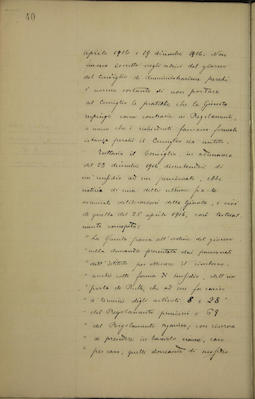 40
aprile 1916 e 19 dicembre 1916. Non
furono scritte negli ordini del giorno
del Consiglio di Amministrazione perchè
è norma costante di non portare
al Consiglio le pratiche che la Giunta
respinge come contrarie ai Regolamenti,
a meno che i richiedenti facciano formale
istanza perchè il Consiglio sia
Tuttavia il Consiglio, in adunanza
del 23 dicembre 1916
un sussidio ad un pensionato, ebbe
notizia di una delle ultime
deliberazioni della Giunta, e cioè
di quella del 25 aprile 1916, così
" La Giunta passa all'ordine del giorno
" sulla domanda presentata dai pensionati
" dell'Istituto per ottenere il rimborso,
" anche sotto forma di sussidio, dell'im
" posta di R.M. che ad essi fa carico
" a termini degli articoli 8 e 28
" del Regolamento pensioni e 69
" del Regolamento organico; con riserva
" di prendere in benevolo esame, caso
" per caso, quelle domande di sussidio